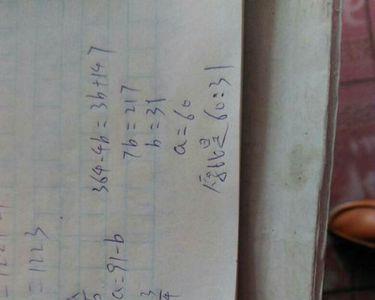 = 1223
a = 91 - b
364 - 4b = 3b + 147
7b = 217
b = 31
a = 60
60 : 31